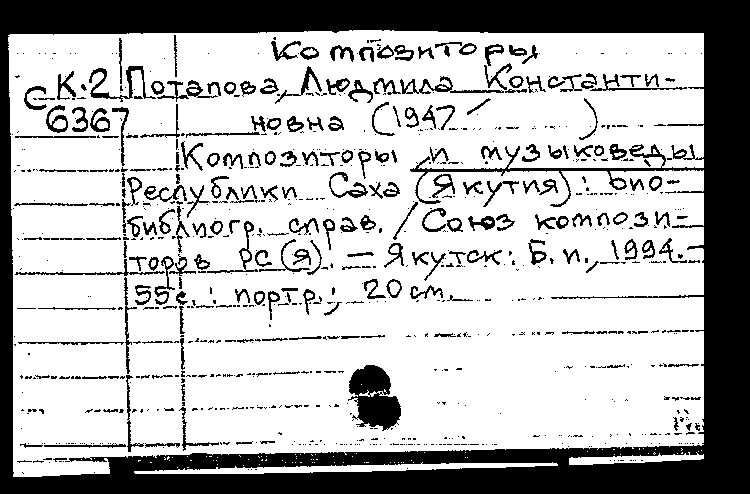 Композиторы
С К.2 Потапова, Людмила Константи-
6367 новна (1947 - )
Композиторы и музыковеды
Республики Саха (Якутия) : био-
библиогр. справ. / Союз компози-
торов РС (Я). — Якутск : Б. и., 1994. -
55 с. : портр. ; 20 см.